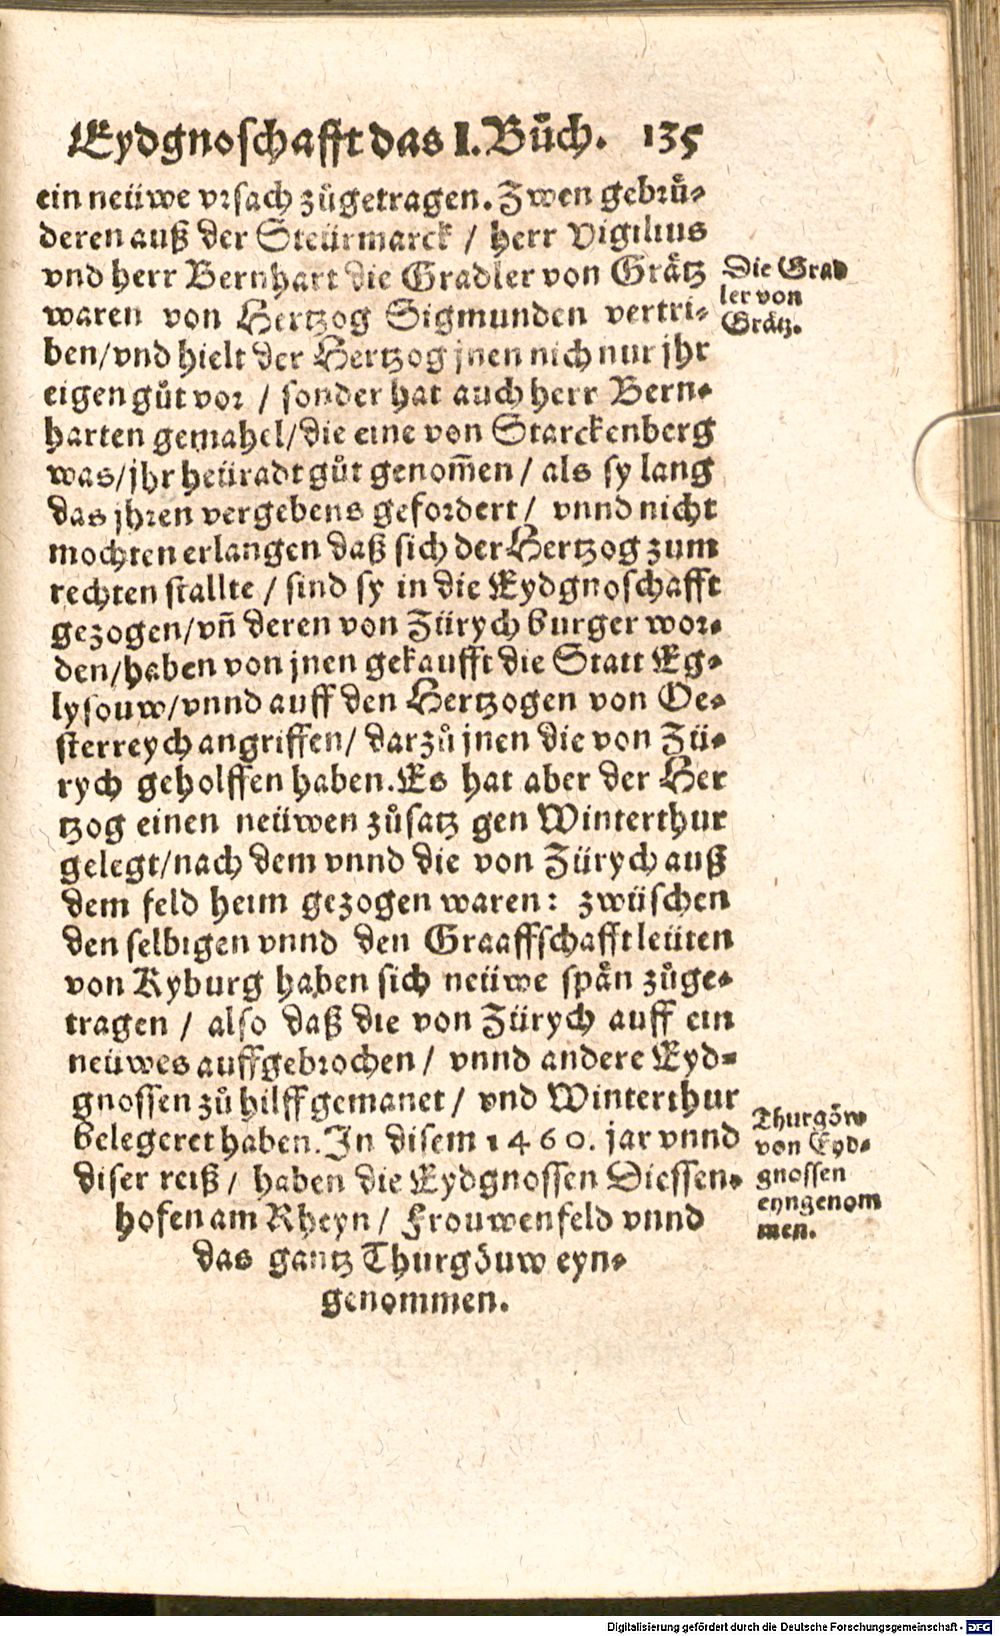 Eydgnoschafft das I. Bůch. 135
ein neüwe vrsach zůgetragen. Zwen gebrů-
deren auß der Steürmarck / herr Vigilius
vnd herr Bernhart die Gradler von Grätz
waren von Hertzog Sigmunden vertri-
ben/vnd hielt der Hertzog jnen nich nur jhr
eigen gůt vor / sonder hat auch herr Bern-
harten gemahel/die eine von Starckenberg
was/jhr heüradt gůt genom̃en / als sy lang
das jhren vergebens gefordert / vnnd nicht
mochten erlangen daß sich der Hertzog zum
rechten stallte / sind sy in die Eydgnoschafft
gezogen/vñ deren von Zürych burger wor-
den/haben von jnen gekaufft die Statt Eg-
lysouw/vnnd auff den Hertzogen von Oe-
sterreych angriffen/ darzů jnen die von Zü-
rych geholffen haben. Es hat aber der Her
tzog einen neüwen zůsatz gen Winterthur
gelegt/nach dem vnnd die von Zürych auß
dem feld heim gezogen waren: zwüschen
den selbigen vnnd den Graaffschafftleüten
von Kyburg haben sich neüwe spån zůge-
tragen / also daß die von Zürych auff ein
neüwes auffgebrochen / vnnd andere Eyd-
gnossen zů hilff gemanet / vnd Winterthur
belegeret haben. In disem 1460. jar vnnd
diser reiß / haben die Eydgnossen Diessen-
hofen am Rheyn / Frouwenfeld vnnd
das gantz Thurgöuw eyn-
genommen.
Die Grad
ler von
Grätz.
Thurgöw
von Eyd-
gnossen
eyngenom
men.
Digitalisierung gefördert durch die Deutsche Forschungsgemeinschaft - DFG